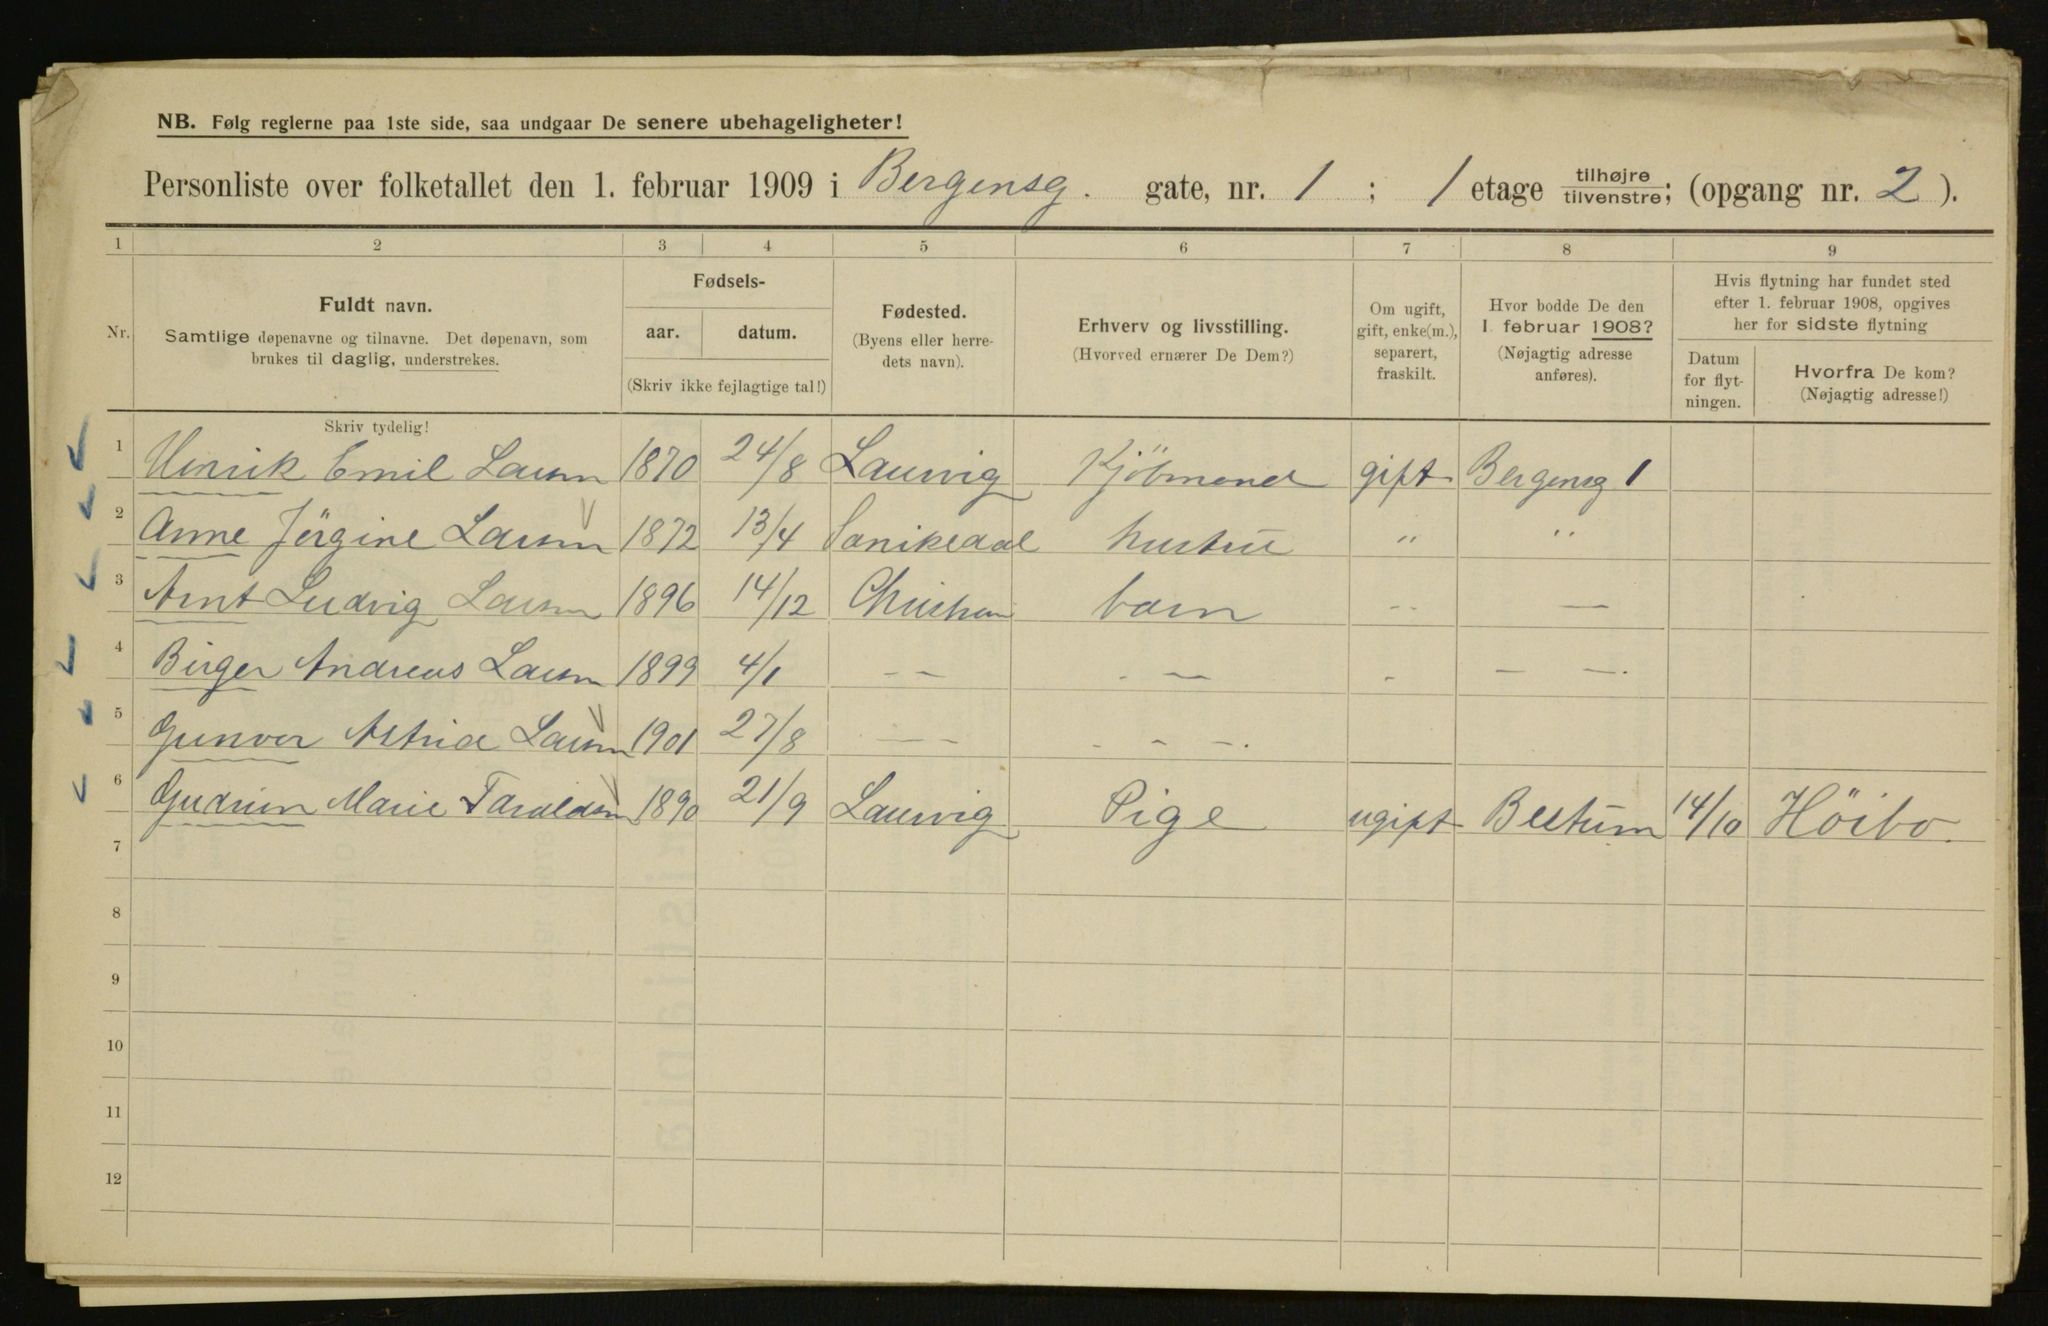 NB. Følg reglerne paa 1ste side, saa undgaar De senere ubehageligheter!
Personliste over folketallet den 1. februar 1909 i Bergensg. gate, nr. 1 ; 1 etage tilhøjre tilvenstre; (opgang nr. 2 ).
1 2 3 4 5 6 7 8 9
Nr.
Fuldt navn.
Samtlige døpenavne og tilnavne. Det døpenavn, som
brukes til daglig, understrekes.
Skriv tydelig!
Fødsels-
aar. datum.
(Skriv ikke fejlagtige tal!)
Fødested.
(Byens eller herre-
dets navn).
Erhverv og livsstilling.
(Hvorved ernærer De Dem?)
Om ugift,
gift, enke(m.),
separert,
fraskilt.
Hvor bodde De den
1. februar 1908?
(Nøjagtig adresse
anføres).
Hvis flytning har fundet sted
efter 1. februar 1908, opgives
her for sidste flytning
Datum
for flyt-
ningen.
Hvorfra De kom?
(Nøjagtig adresse!)
1 Henrik Emil Larsen 1870 24/8 Laurvig Kjöbmand gift Bergensg 1
2 Anne Jörgine Larsen 1872 13/4 Sanikedal hustru " "
3 Arnt Ludvig Larsen 1896 14/12 Christiani barn -- —
4 Birger Andreas Larsen 1899 4/1 — — - — - — —.
5 Gunvor Astrid Larsen 1901 27/8 — — - - —.
6 Gudrun Marie Taraldsen 1890 21/9 Laurvig Pige ugift Bestum 14/10 Höibo.
7
8
9
10
11
12